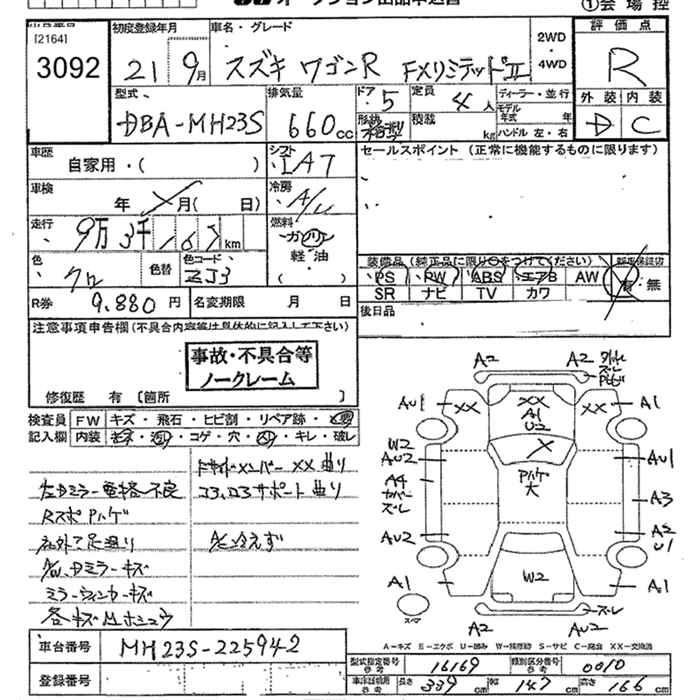 オークション出品申込書
①会場控
出品番号
[2164]
3092
初度登録年月
21 9月
車名・グレード
スズキ ワゴンR FXリミテッドⅡ
2WD
4WD
評価点
R
外装 内装
D C
型式
DBA-MH23S
排気量
660cc
ドア 5
形状
定員 4人
積載 kg
ディーラー・並行
モデル年式 年
ハンドル 左・右
車歴
自家用・( )
シフト
IAT
セールスポイント (正常に機能するものに限ります)
車検
年 月( 日)
冷房
A/C
走行
9万3千167km
燃料
ガソリン
軽・油
( )
色
クロ
色替
色コード
ZJ3
装備品(純正品に限り○をつけてください)
新車保証書
PS PW ABS エアB AW 有・無
SR ナビ TV カワ
R券 9.880円
名変期限 月 日
後日品
注意事項申告欄(不具合内容等は具体的に記入して下さい)
事故・不具合等
ノークレーム
修復歴 有 [箇所 ]
検査員 FW キズ・飛石・ヒビ割・リペア跡・要
記入欄 内装 キズ・コゲ・穴・キレ・破レ
XX曲り
左Dミラー電格不良
コア、コアサポート曲り
RスポPハゲ
A/C冷えず
Dミラーキズ
ミラーウィンカーキズ
各キズ
A2
A2
AU1 XX
XX
A1
U2
XX A1
W2
AU2
A4
カバー
ズレ
X
Pハゲ
大
AU1
A3
A2
U1
AU2
A1
W2
A1
スペア
A2
AU2
ズレ
A=キズ E=エクボ U=凹み W=補修跡 S=サビ C=腐食 XX=交換済
車台番号 MH23S-225942
登録番号
型式指定番号 参考 16169
類別区分番号 参考 0010
車検証記載 参考 長さ 339cm 幅 147cm 高さ 166cm